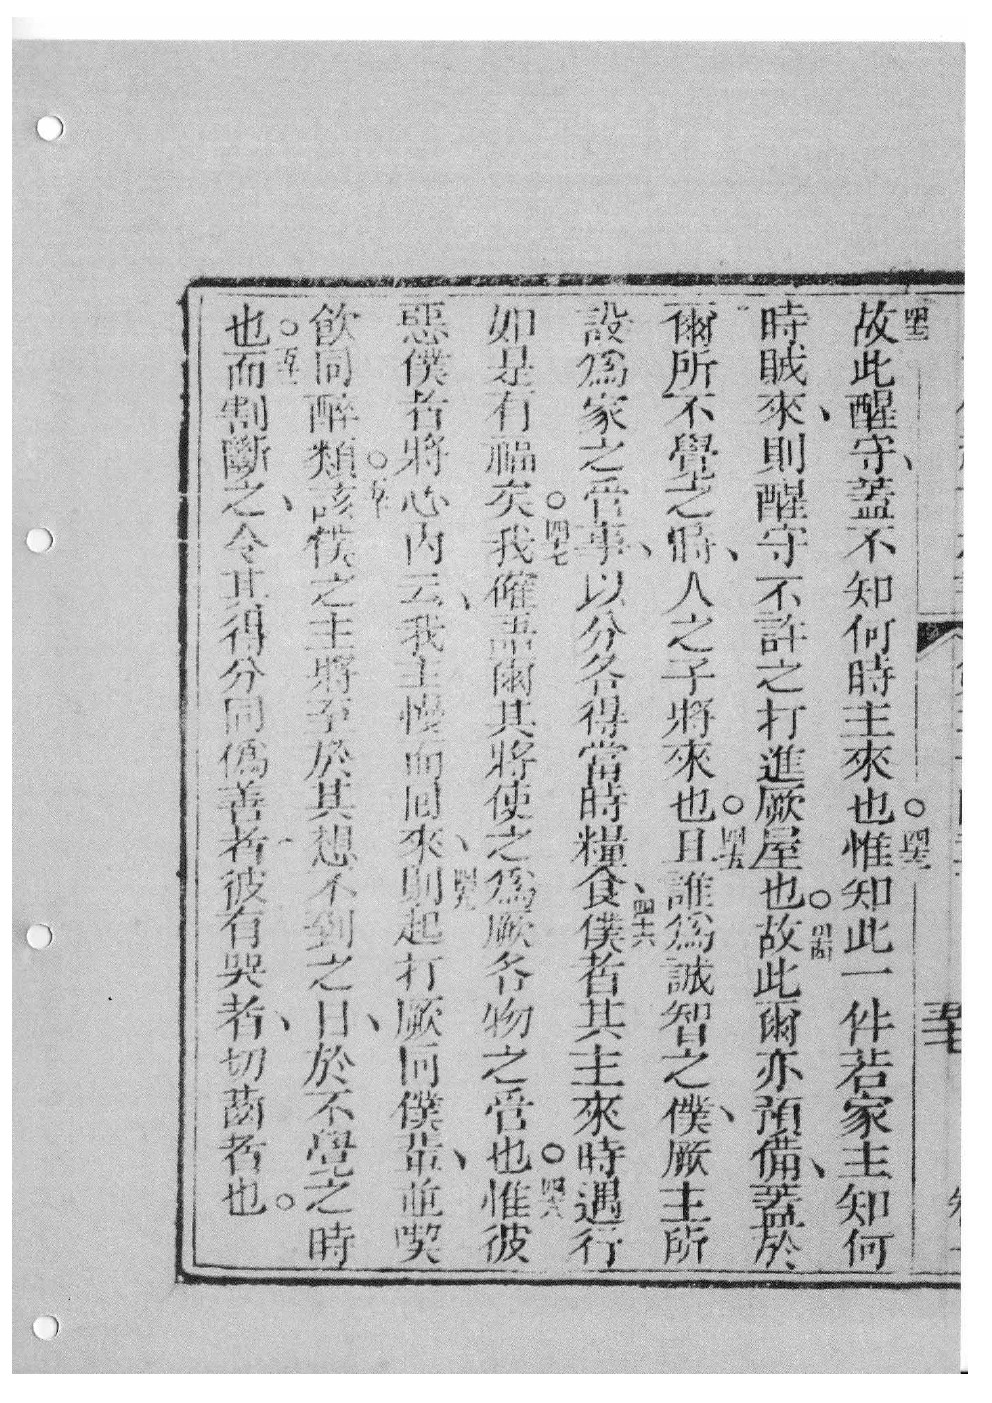 四二故此醒守、蓋不知何時主來也。四三惟知此一件若家主知何
時賊來、則醒守不許之打進厥屋也。四四故此爾亦預備、蓋於
爾所不覺之時、人之子將來也。四五且誰為誠智之僕、厥主所
設為家之管事、以分各得當時糧食、四六僕者其主來時遇行
如是有福矣。四七我確語爾其將使之為厥各物之管也。四八惟彼
惡僕者將心內云、我主慢而囘來、四九則起打厥同僕輩、並喫
飲同醉類。五十該僕之主將至於其想不到之日、於不覺之時
也。五一而割斷之、令其得分同偽善者、彼有哭者、切齒者也。